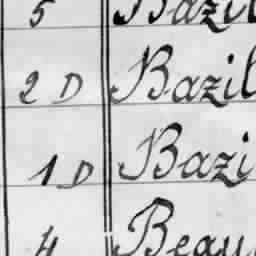 5 Bazil
2 D Bazil
1 D Bazi
4 Beau